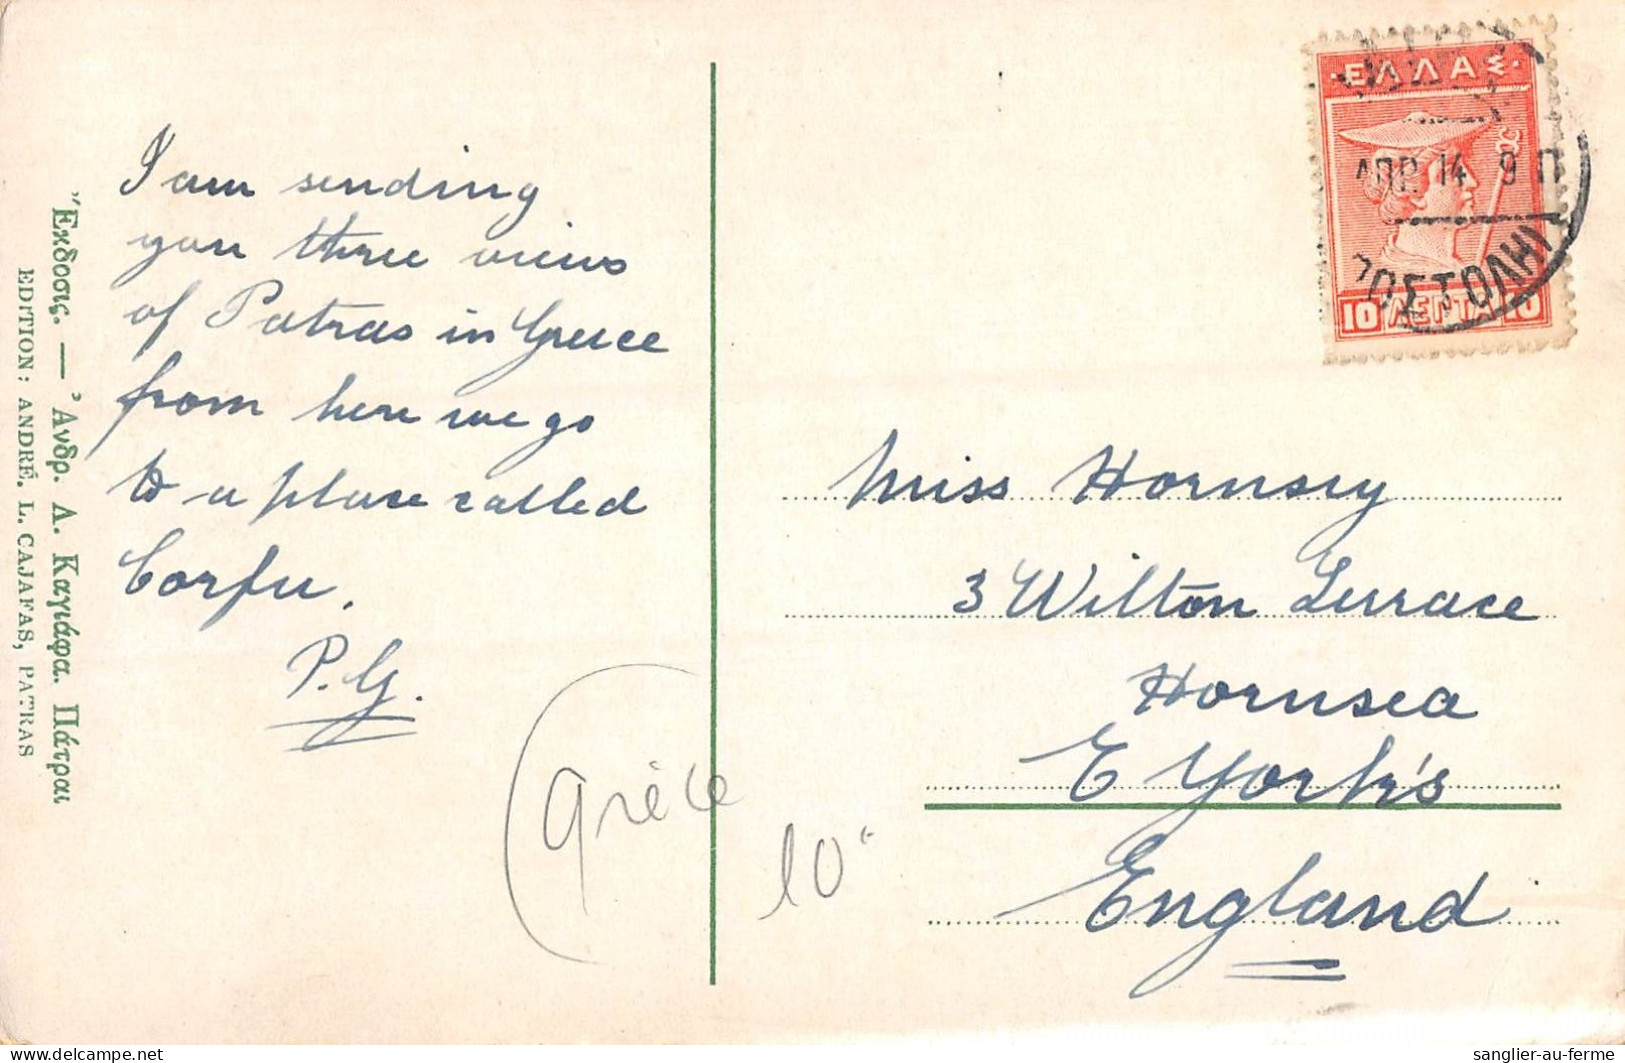 Ἔκδοσις. — Ἀνδρ. Λ. Καγιάφα. Πάτραι
EDITION: ANDRÉ. L. CAJAFAS, PATRAS
I am sending
you three views
of Patras in Greece
from here we go
to a place called
Corfu.
P.G.
Grèce
10
ΕΛΛΑΣ
ΑΠΡ 14 9 Π
ΟΣΤΟΛΗ
10 ΛΕΠΤΑ 10
Miss Hornsey
3 Wilton Terrace
Hornsea
E York's
England
delcampe.net
sanglier-au-ferme